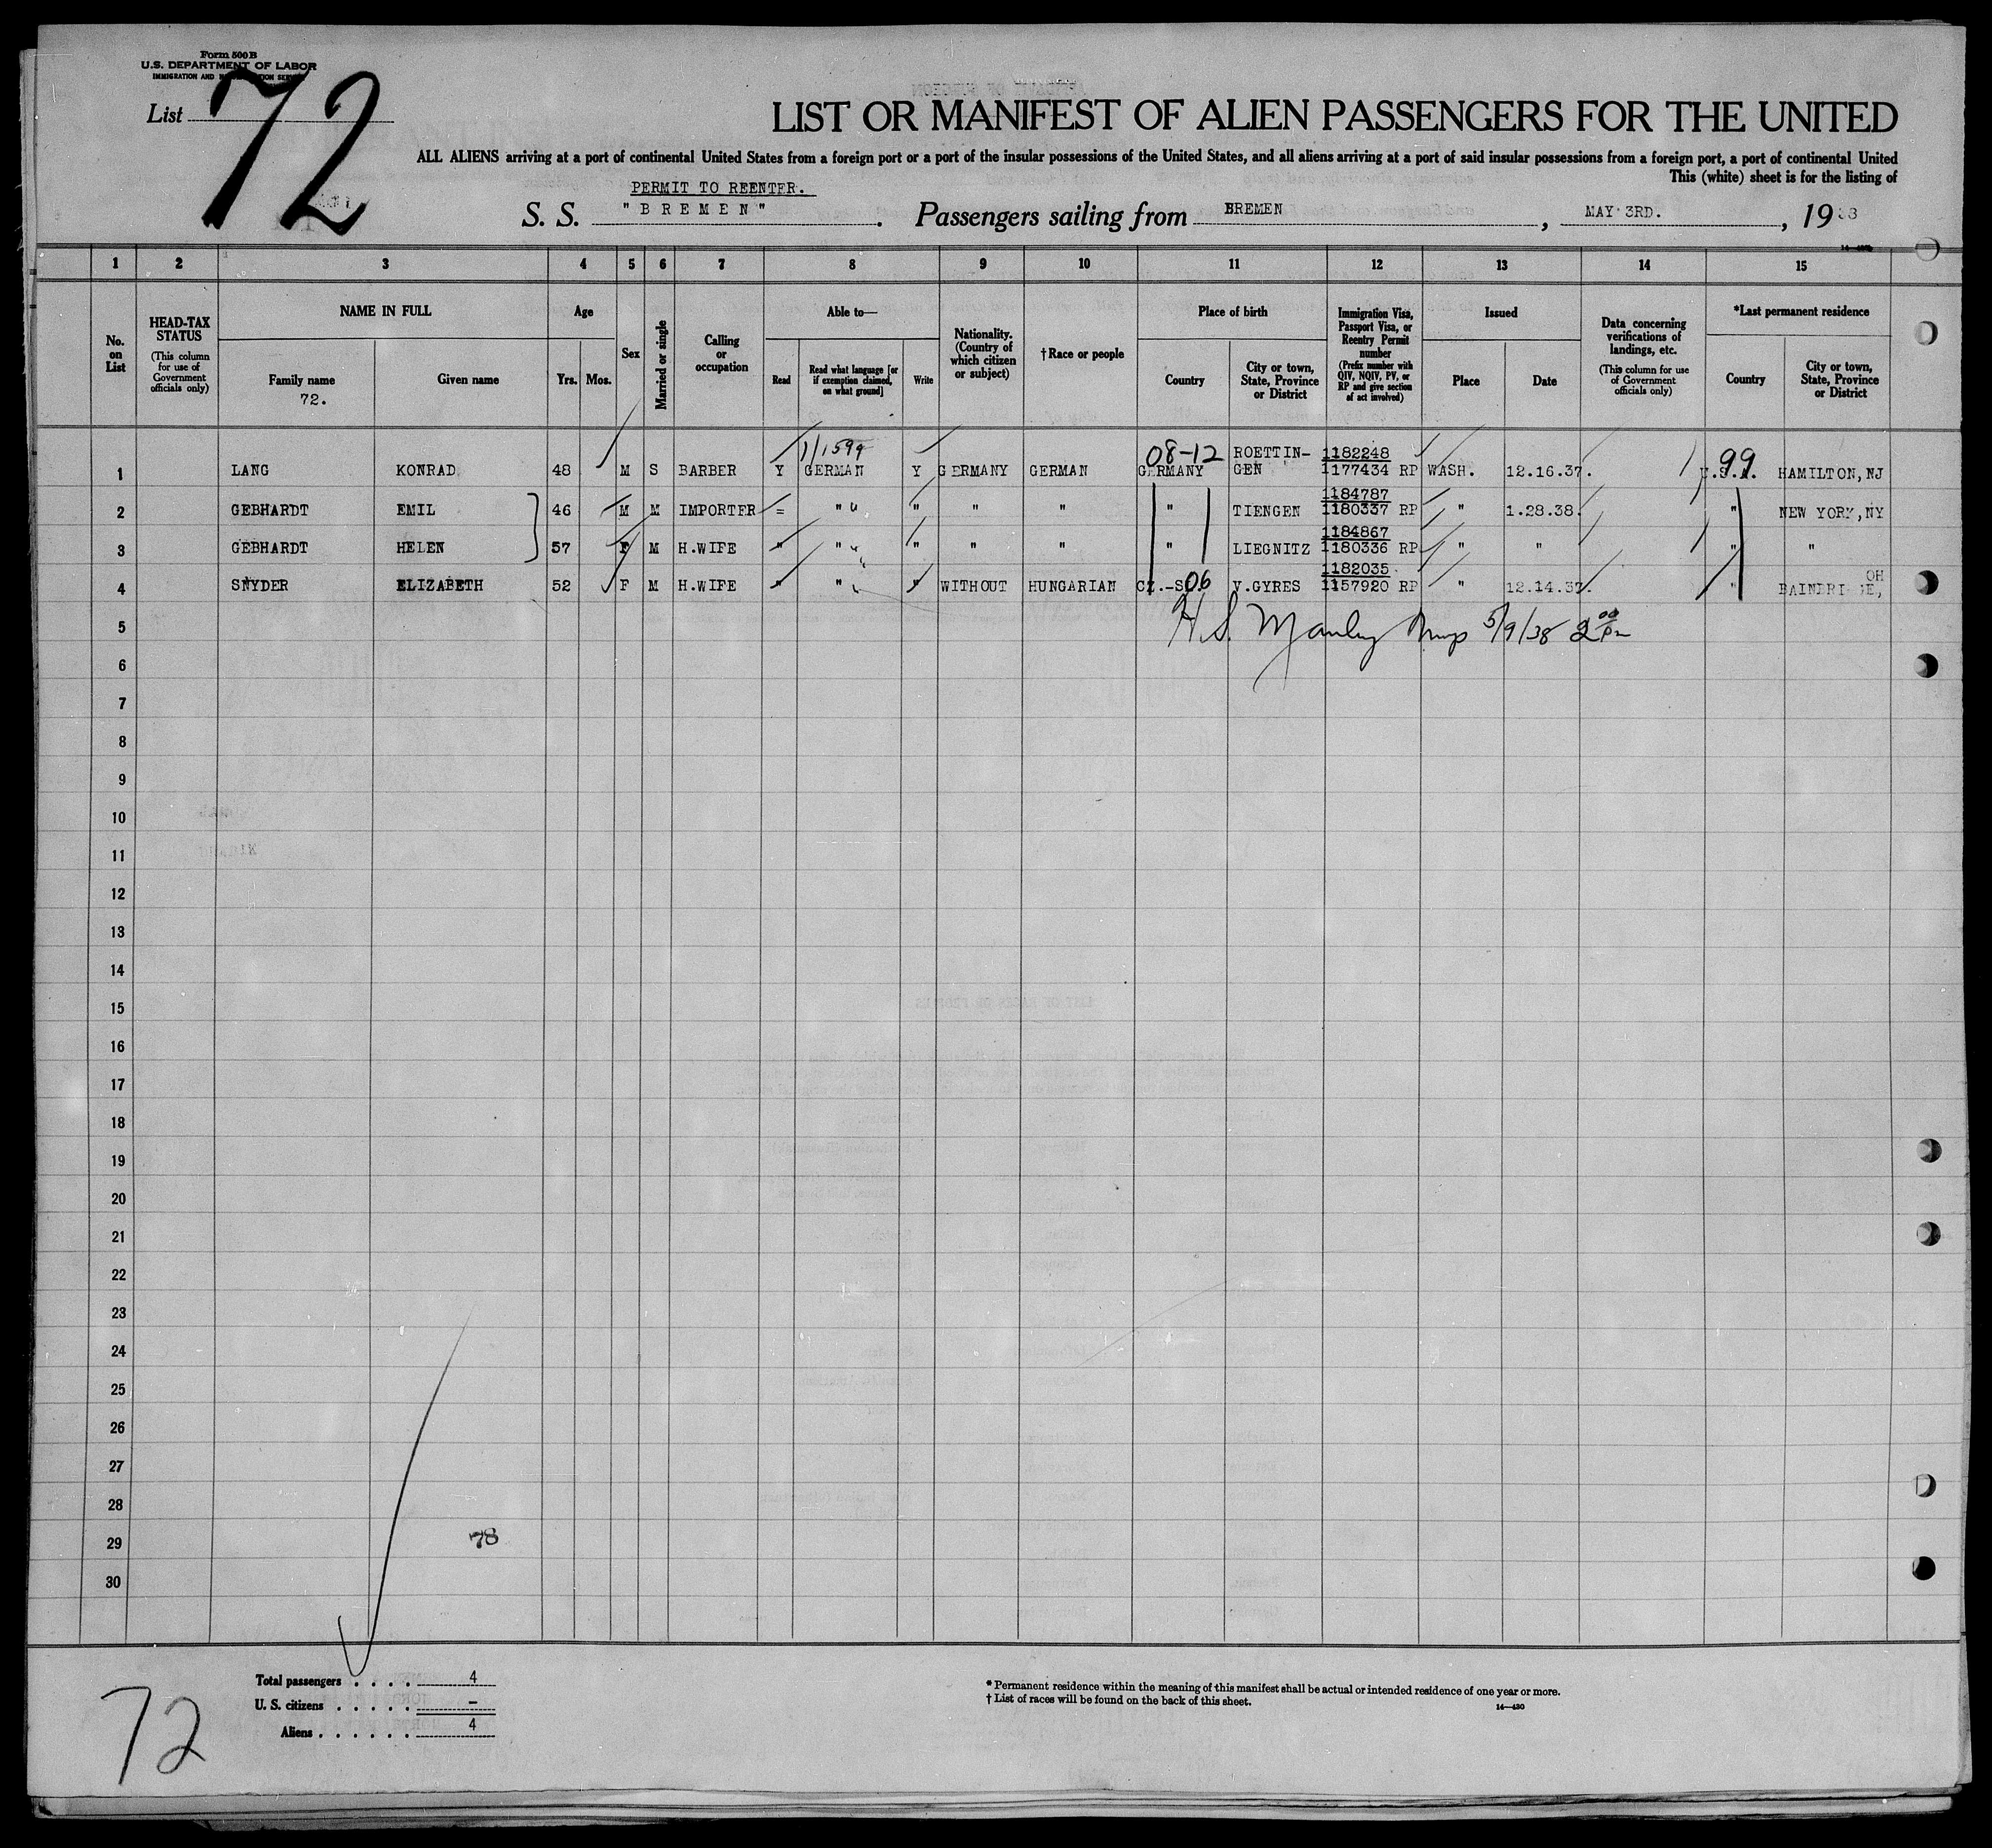 Form 500 B
U.S. DEPARTMENT OF LABOR
IMMIGRATION AND
List 72
LIST OR MANIFEST OF ALIEN PASSENGERS FOR THE UNITED
ALL ALIENS arriving at a port of continental United States from a foreign port or a port of the insular possessions of the United States, and all aliens arriving at a port of said insular possessions from a foreign port, a port of continental United
This (white) sheet is for the listing of
PERMIT TO REENTER.
S. S. "BREMEN". Passengers sailing from BREMEN, MAY 3RD., 1938
1 2 3 4 5 6 7 8 9 10 11 12 13 14 15
No. on List
HEAD-TAX STATUS (This column for use of Government officials only)
NAME IN FULL
Family name
72.
Given name
Age
Yrs. Mos.
Sex
Married or single
Calling or occupation
Able to—
Read
Read what language [or if exemption claimed, on what ground]
Write
Nationality. (Country of which citizen or subject)
†Race or people
Place of birth
Country
City or town, State, Province or District
Immigration Visa, Passport Visa, or Reentry Permit number (Prefix number with QIV, NQIV, PV, or RP and give section of act involved)
Issued
Place
Date
Data concerning verifications of landings, etc. (This column for use of Government officials only)
*Last permanent residence
Country
City or town, State, Province or District
1/1599 08-12 ROETTIN- 1182248 99
1 LANG KONRAD 48 M S BARBER Y GERMAN Y GERMANY GERMAN GERMANY GEN 1177434 RP WASH. 12.16.37. U.S.A. HAMILTON, NJ
1184787
2 GEBHARDT EMIL 46 M M IMPORTER = " " " " " TIENGEN 1180337 RP " 1.28.38. " NEW YORK, NY
1184867
3 GEBHARDT HELEN 57 F M H.WIFE " " " " " " LIEGNITZ 1180336 RP " " " "
1182035 OH
4 SNYDER ELIZABETH 52 F M H.WIFE " " " WITHOUT HUNGARIAN CZ.-S 06 V.GYRES 1157920 RP " 12.14.37. " BAINBRIDGE,
5 H.S. Manley 5/9/38 2 00 Pm
6
7
8
9
10
11
12
13
14
15
16
17
18
19
20
21
22
23
24
25
26
27
28
29
78
30
Total passengers . . . . 4
U. S. citizens . . . . . –
Aliens . . . . . . 4
72
* Permanent residence within the meaning of this manifest shall be actual or intended residence of one year or more.
† List of races will be found on the back of this sheet.
14—430